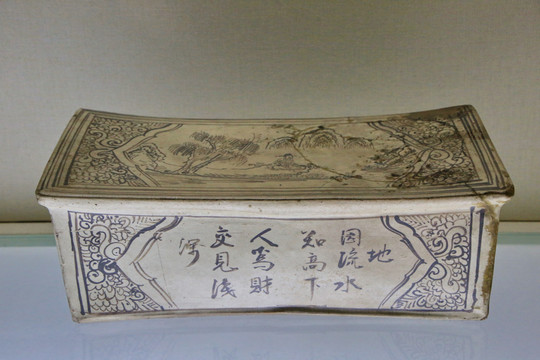 地
因流水
知高下
人為財
交見浅
深